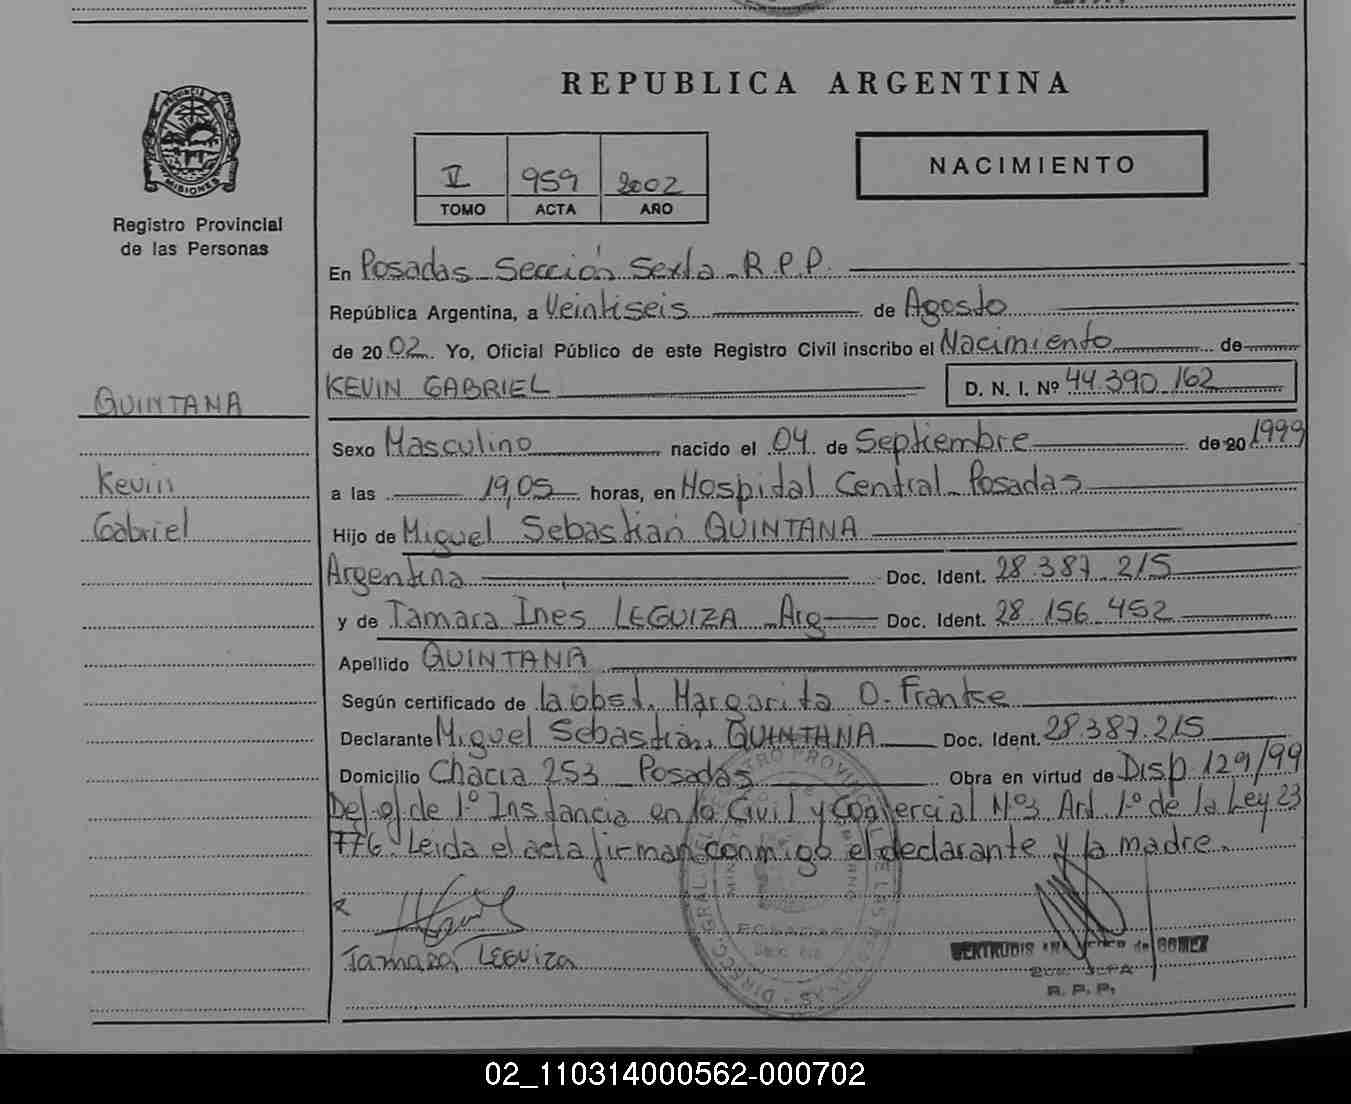 REPUBLICA ARGENTINA
PROVINCIA DE
MISIONES
Registro Provincial
de las Personas
NACIMIENTO
V 959 2002
TOMO ACTA AÑO
En Posadas Sección Sexta R.P.P.
República Argentina, a Veintiseis de Agosto
de 2002. Yo, Oficial Público de este Registro Civil inscribo el Nacimiento de
KEVIN GABRIEL D. N. I. Nº 44.390.162
QUINTANA
Kevin
Gabriel
Sexo Masculino nacido el 04 de Septiembre de 20 1999
a las 19,05 horas, en Hospital Central Posadas
Hijo de Miguel Sebastian QUINTANA
Argentina Doc. Ident. 28.387.215
y de Tamara Ines LEGUIZA Arg Doc. Ident. 28.156.452
Apellido QUINTANA
Según certificado de la obst. Margarita O. Frantse
Declarante Miguel Sebastian QUINTANA Doc. Ident. 28.387.215
Domicilio Chacra 253 Posadas Obra en virtud de Disp 129/99
Del of de 1º Instancia en lo Civil y Comercial Nº3 Art 1º de la Ley 23
776. Leida el acta firman conmigo el declarante y la madre.
Tamara LEGUIZA
GERTRUDIS de GOMEZ
R. P. P.
POSADAS
02_110314000562-000702